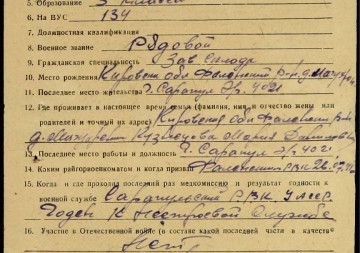 5. Образование 3 класса
6. На ВУС 134
7. Должностная квалификация
8. Военное звание Рядовой
9. Гражданская специальность Зав. Склада
10. Место рождения Кировская обл Фаленский р-н д.
11. Последнее место жительства г. Сарапул
12. Где проживает в настоящее время семья (фамилия, имя и отчество жены или
родителей и точный их адрес) Кировская обл Фаленский р-н
д. Кузнецова Мария
13. Последнее место работы и должность г. Сарапул
14. Каким райгорвоенкоматом и когда призван Фаленским РВК
15. Когда и где проходил последний раз медкомиссию и результат годности к
военной службе Сарапульский РВК УАССР.
Годен к нестроевой службе
16. Участие в Отечественной войне (в составе какой последней части и в качеств
Нет